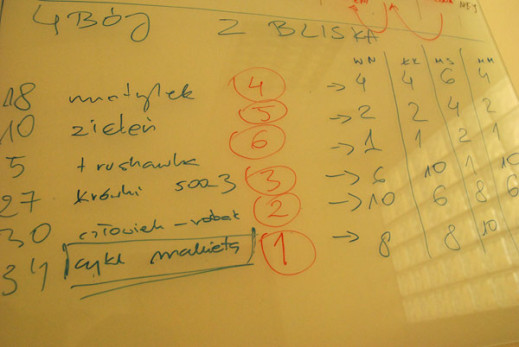 4BÓJ Z BLISKA
WN ŁK MS MM
18 motylek 4 → 4 4 6 4
10 zieleń 5 → 2 2 4 2
5 truskawka 6 → 1 1 2 1
27 krówki 3 → 6 10 1 10
30 człowiek-robak 2 → 10 6 8 6
34 cykl 1 → 8 8 10